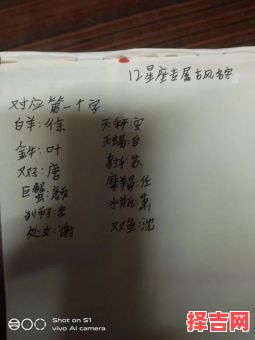 12星座专属古风名字
对应第一个字
白羊:徐
天秤:安
金牛:叶
天蝎:白
双子:唐
射手:苏
巨蟹:颜
摩羯:任
水瓶:萧
处女:谢
双鱼:沈
Shot on S1
vivo AI camera
择吉网